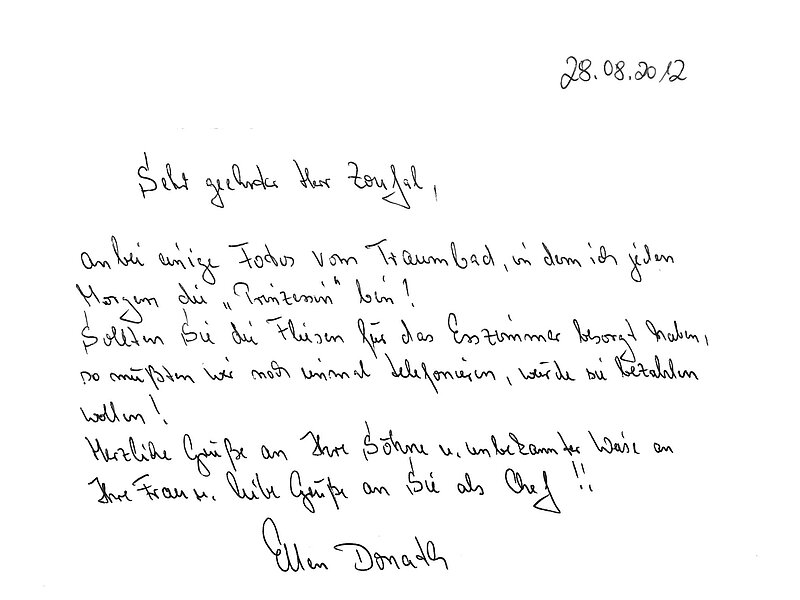 28.08.2012
Sehr geehrter Herr Zoufal,
anbei einige Fotos vom Traumbad, in dem ich jeden
Morgen die „Prinzessin“ bin!
Sollten Sie die Fliesen für das Esszimmer besorgt haben,
so müßten wir noch einmal telefonieren, würde sie bezahlen
wollen!
Herzliche Grüße an Ihre Söhne u. unbekannter Weise an
Ihre Frau u. liebe Grüße an Sie als Chef!!
Ellen Donath